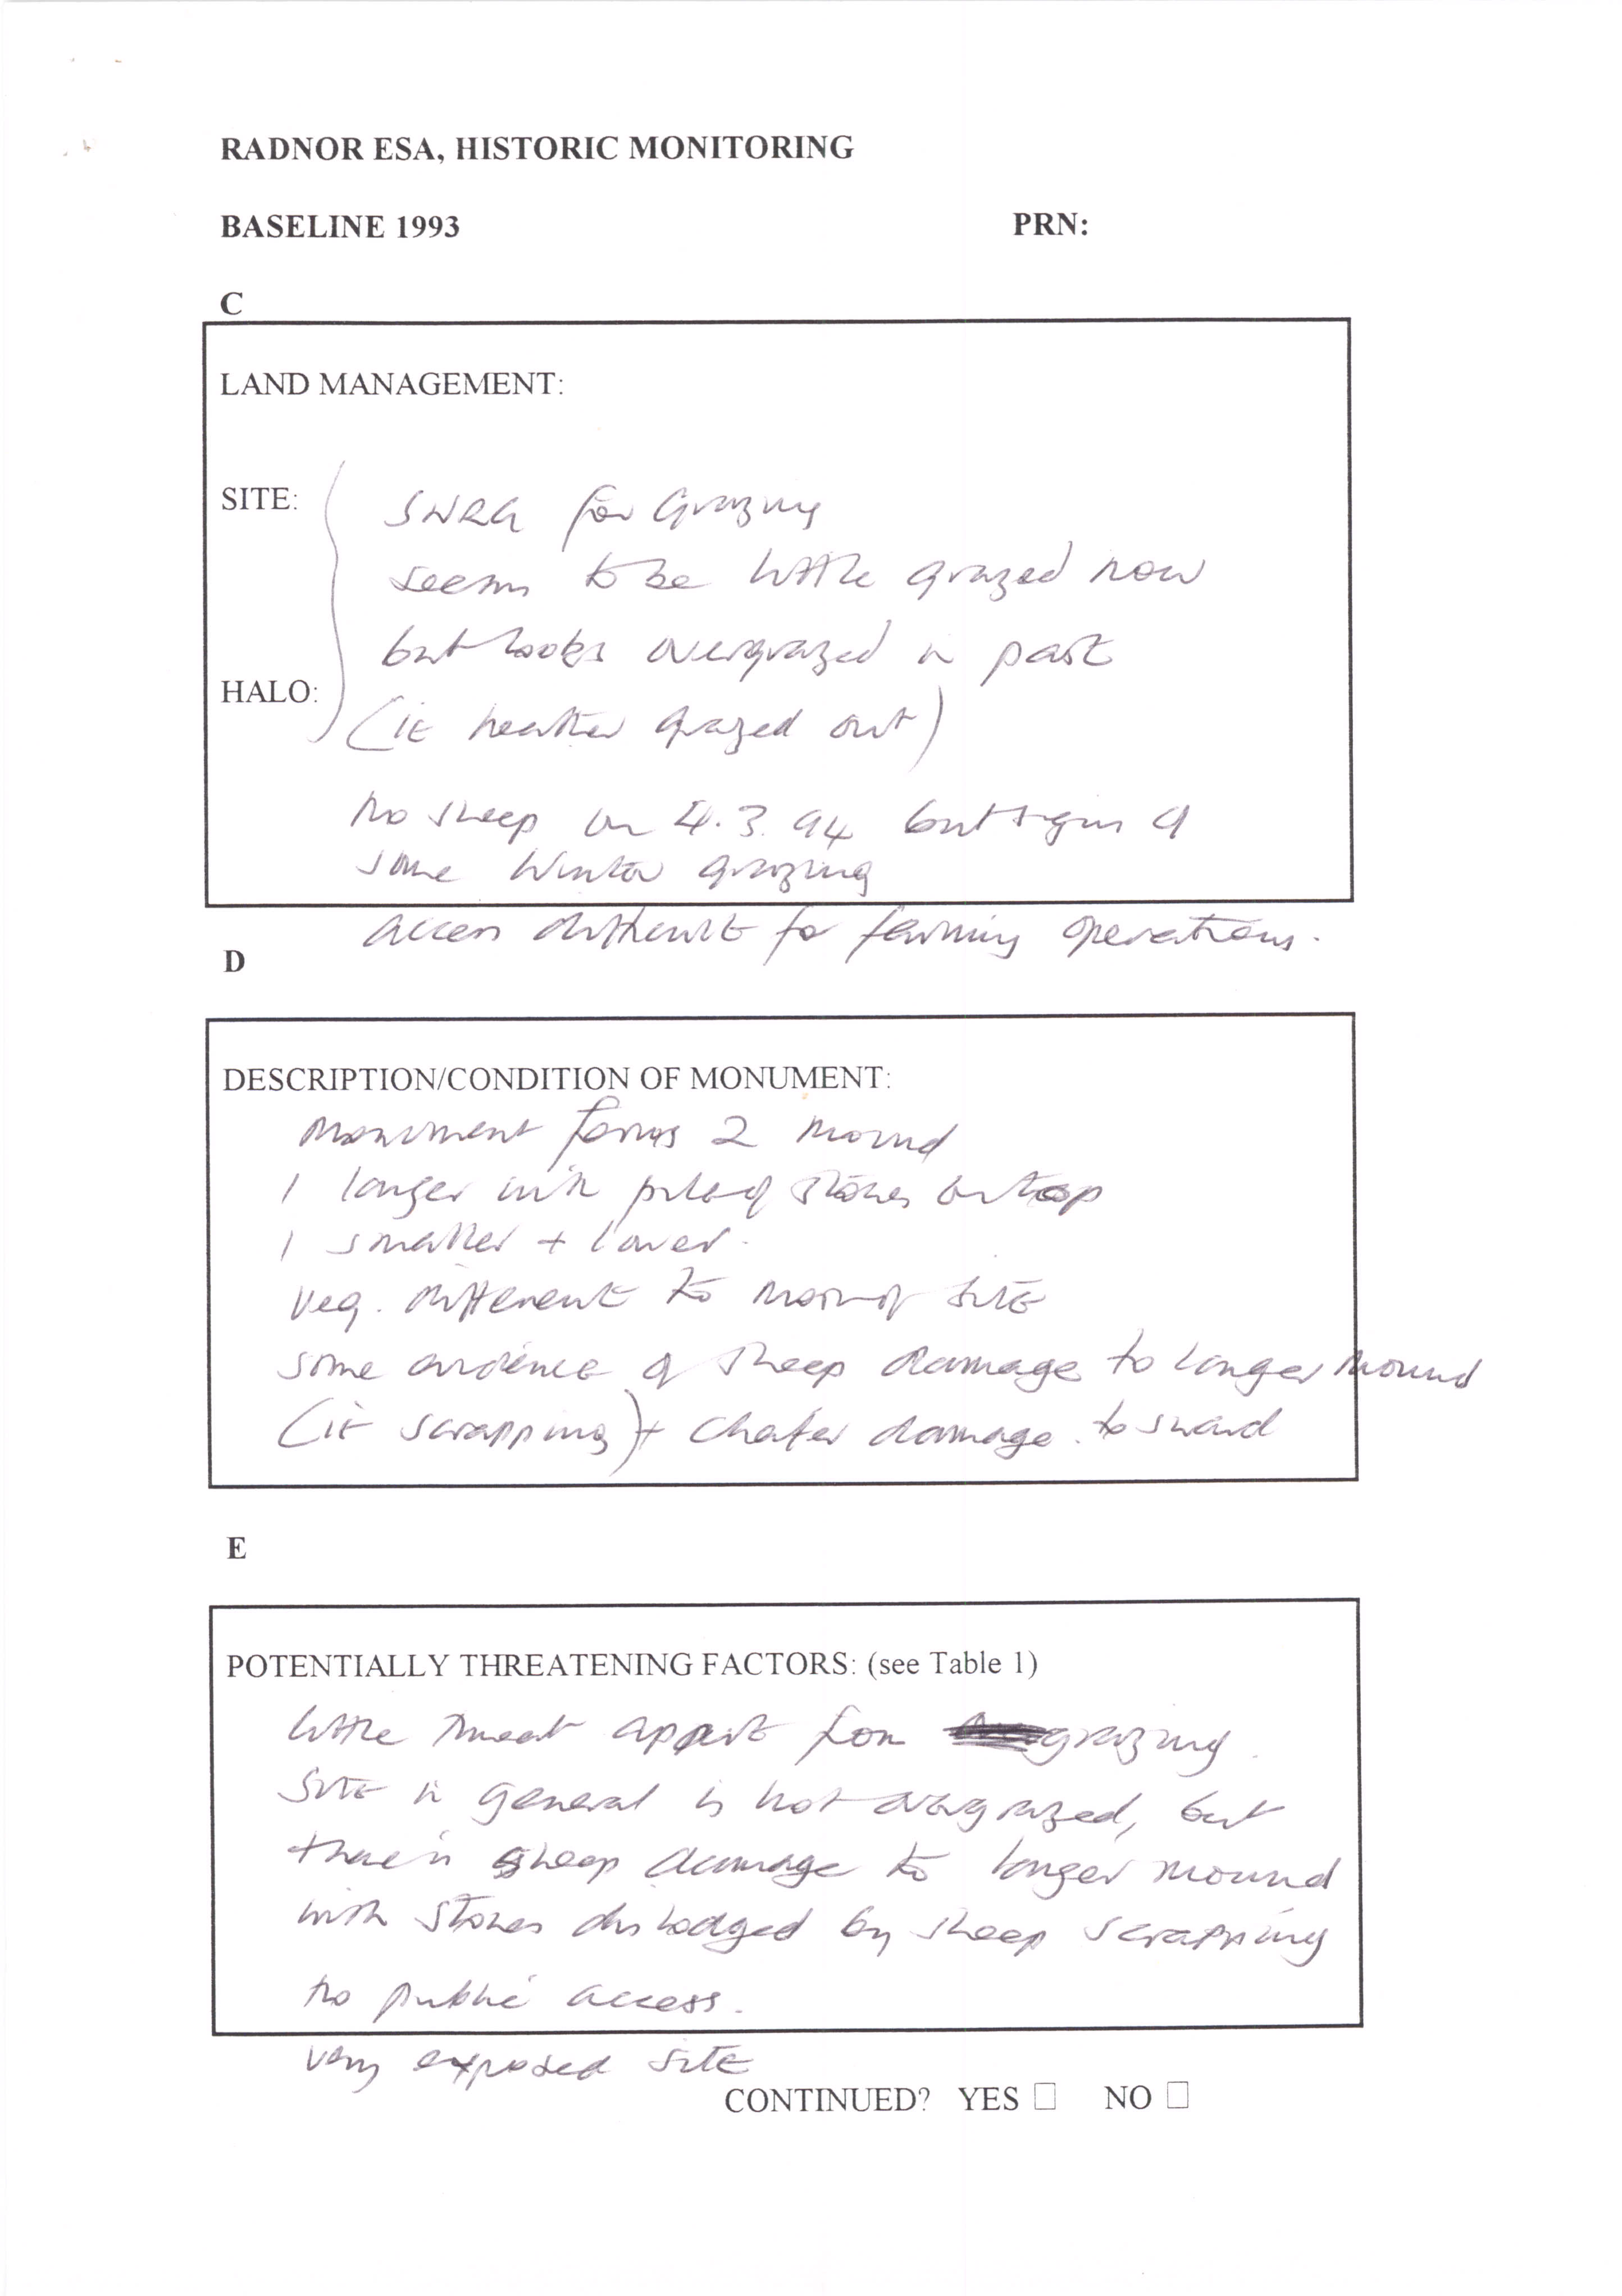 RADNOR ESA, HISTORIC MONITORING
BASELINE 1993 PRN:
C
LAND MANAGEMENT:
SITE: for Grazing
seems to be little grazed now
but looks overgrazed in past
HALO: (ie heather grazed out)
No sheep on 4.3.94 but signs of
some Winter grazing
access difficult for farming operations.
D
DESCRIPTION/CONDITION OF MONUMENT:
Monument forms 2 mound
1 longer with pile of stones on top
1 smaller + lower.
veg. different to most of site
some evidence of sheep damage to longer mound
(ie scrapping) + chafer damage to sward
E
POTENTIALLY THREATENING FACTORS: (see Table 1)
little threat appart from grazing.
Site in general is not overgrazed, but
there is sheep damage to longer mound
with stones dislodged by sheep scrapping
No public access.
very exposed site
CONTINUED? YES NO